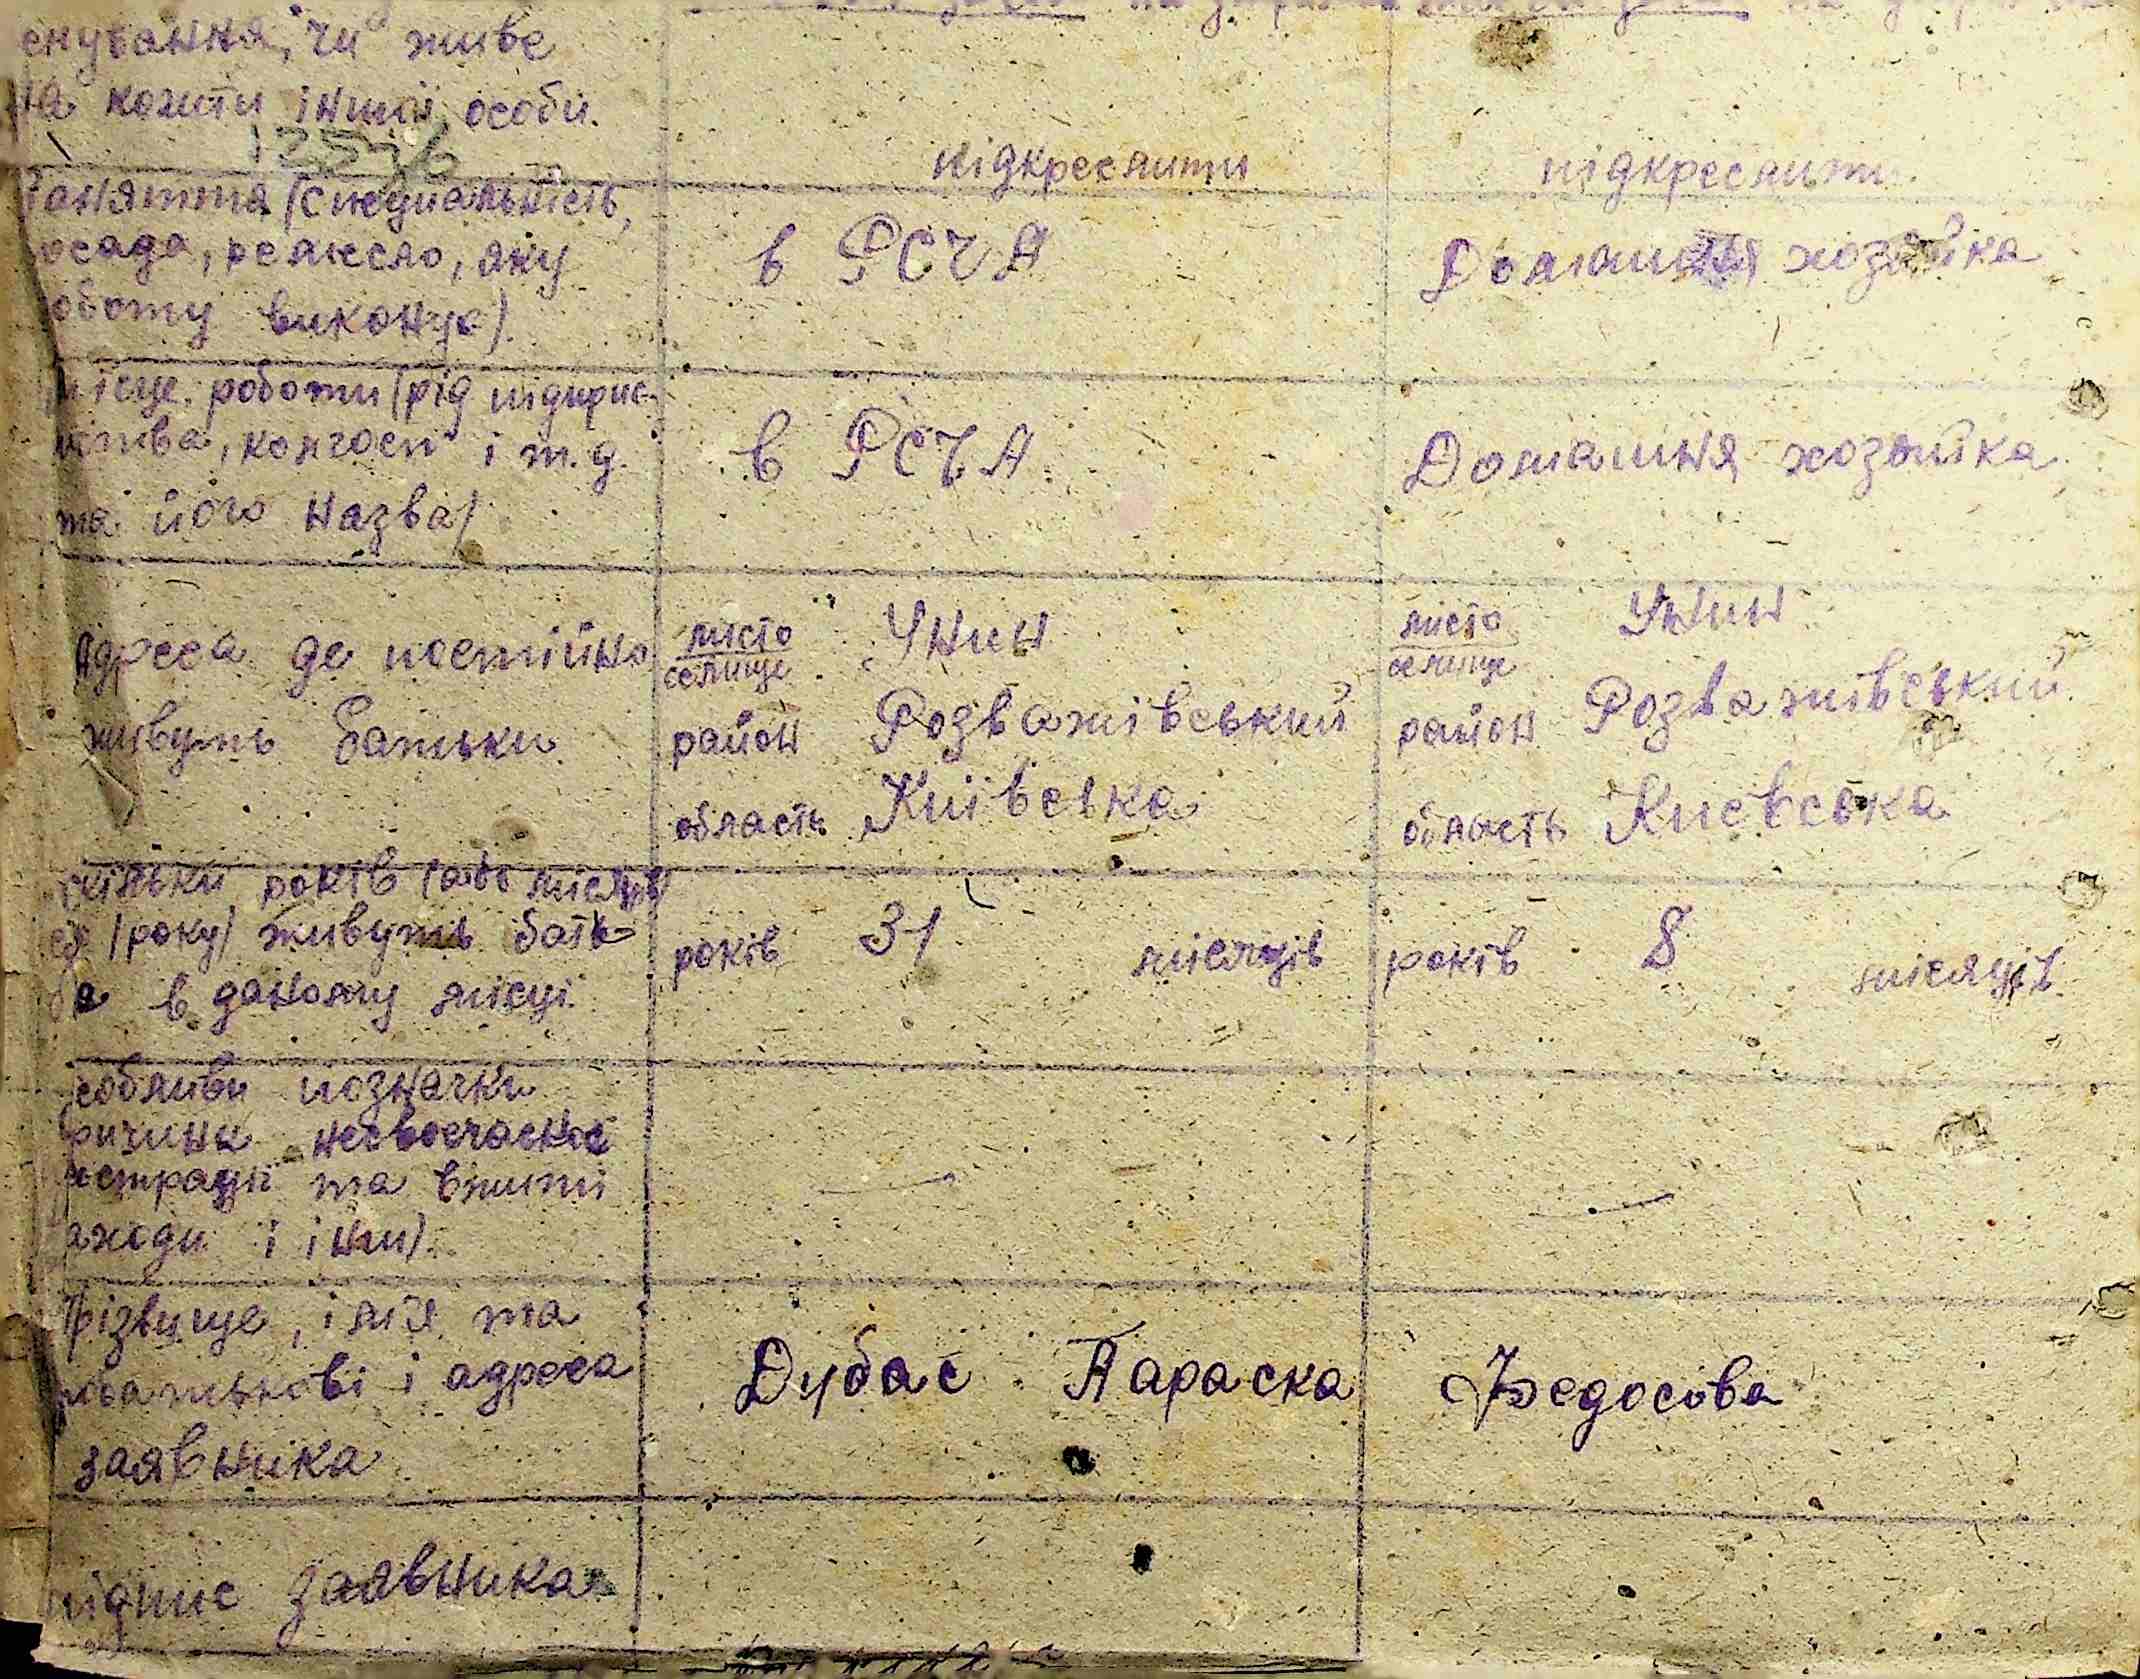 снування, чи живе
на кошти іншої особи.
підкреслити підкреслити
заняття (специальність,
посада, ремесло, яку
роботу виконує).
в РСЧА
Домашня хозяйка
місце роботи (рід підприє-
мства, колгосп і т.д.
та його назва)
в РСЧА
Домашня хозяйка
Адреса де постійно
живуть батьки
місто Унин
селище
район Розважівський
область Київська
місто Унин
селище
район Розважівський
область Киевська
скільки років (або місяців
для /року/ живуть бать
ки в даному місці
років 31 місяців
років 8 місяців
особливи позначки
причини несвоечасної
реєстрації та вжиті
заходи і інш).
Прізвище, імя та
побатькові і адреса
заявника
Дубас Параска Федосова
підпис заявника